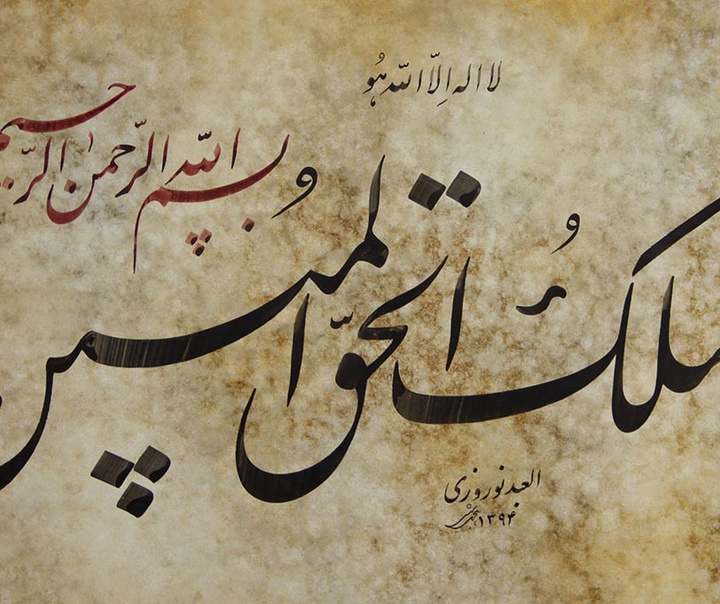 لا اله اِلّا اللّه هُو
بسم اللّه الرّحمن الرّحیم
الملکُ الحقّ المبین
العبد نوروزی
۱۳۹۴